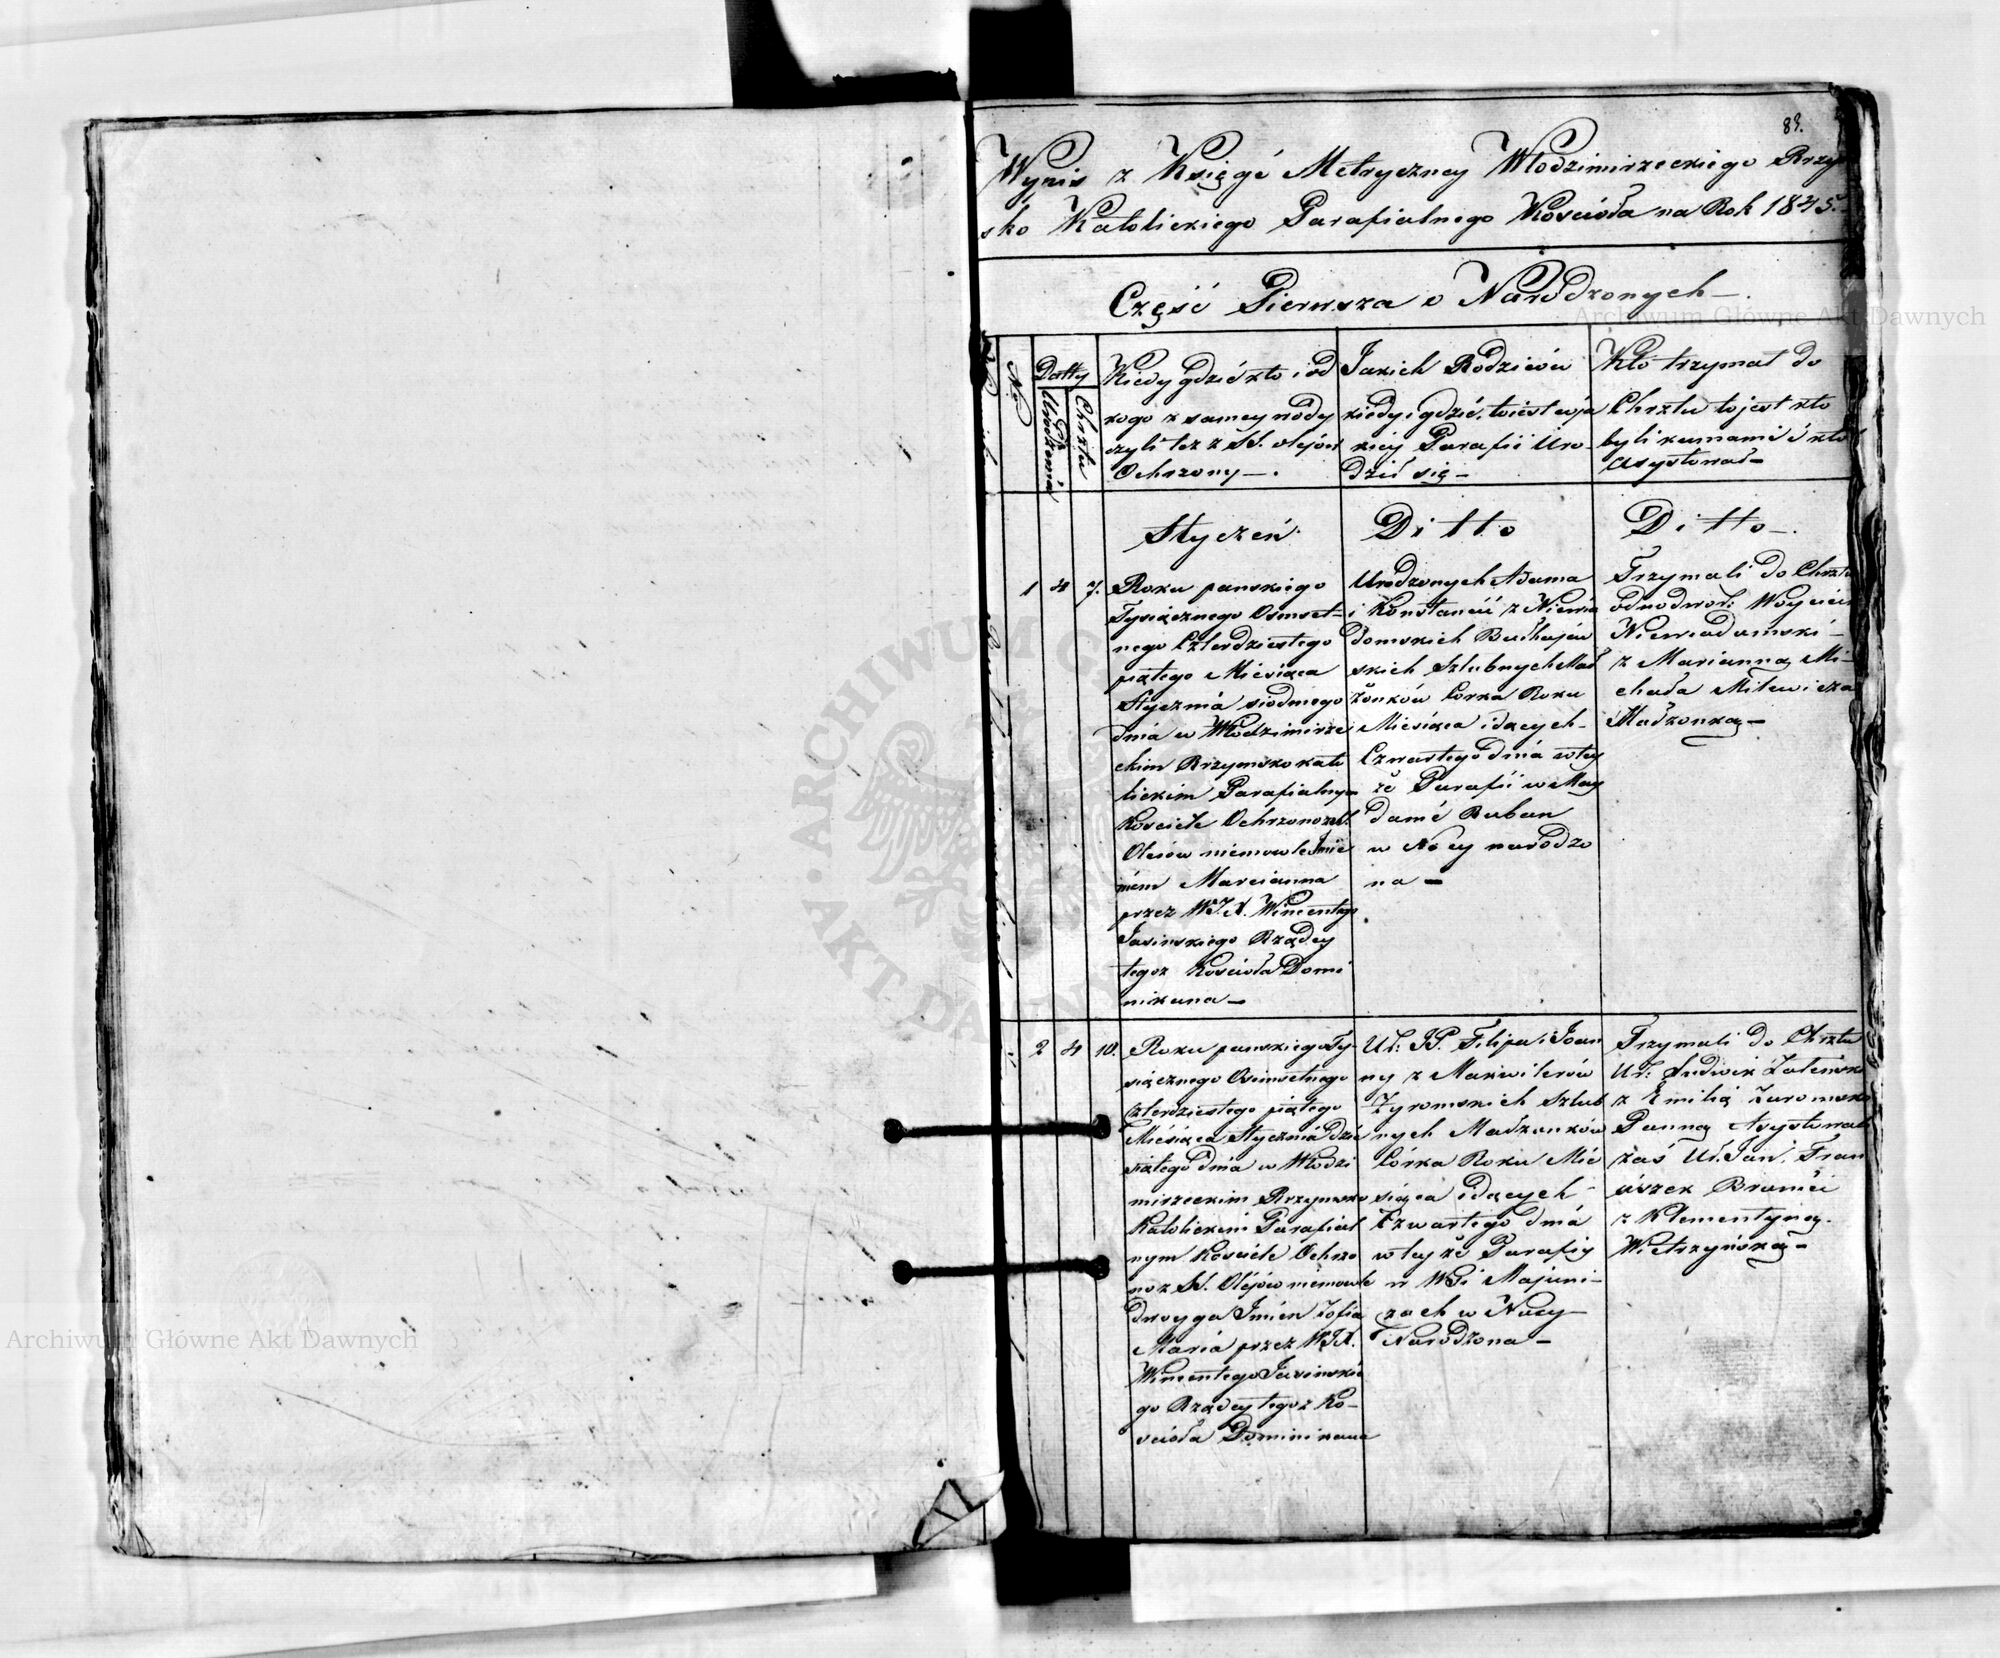 83.
Wypis z Księgi Metryczney Włodzimirzeckiego Rzym
sko Katolickiego Parafialnego Kościoła na Rok 1845.
Część Pierwsza o Narodzonych
No
Datty
Urodzenia
Chrztu
Kiedy gdzie kto i od
kogo z samey wody
czyli też z SS. olejów
Ochrzony
Jakich Rodziców
kiedy i gdzie, to iest w ja
kiey Parafii Uro-
dził się
Kto trzymał do
Chrztu to jest kto
byli kumami i kto
Asystował
Styczeń
Ditto
Ditto
1 4 7.
Roku pańskiego
Tysiącznego Osmset-
nego Czterdziestego
piątego Miesiąca
Stycznia siodmego
dnia w Włodzimirze
ckim Rzymsko kato
lickim Parafialnym
Kościele Ochrzono z SS.
Oleiów niemowle Imie
niem Marcianna
przez W.J.X. Wincentego
Jasinskiego Rządcy
tegoż Kościoła Domi
nikana
Urodzonych Adama
i Konstancii z Niewia
domskich
skich Szlubnych Mał
żonków Corka Roku
Miesiąca idących
Czwartego dnia w tey
że Parafii w May
danie Buban
w Nocy narodzo
na
Trzymali do Chrztu
Woyciech
Niewiadomski
z Marianną Mi-
chała Milewicza
Małżonką
2 4 10.
Roku pańskiego Ty-
siącznego Osimsetnego
czterdziestego piątego
Miesiąca Stycznia dzie
siątego dnia w Włodzi
mirzeckim Rzymsko
Katolickim Parafial
nym Kościele Ochrzo
no z SS. Olejów niemowle
dwoyga Imion Zofia
Maria przez W.J.X.
Wincentego Jasinskie
go Rządcy tegoż Ko-
ścioła Dominikana
Ur: JP. Filipa i Joan
ny z Makwilerów
Żyromskich Szlub
nych Małżonków
Córka Roku Mie
siąca idących
Czwartego dnia
w tey że Parafiy
w Wsi Majuni-
zach w Nocy
Narodzona
Trzymali do Chrztu
Ur: Ludwik Zaleński
z Emilią Żuromską
Panną Asystowali
zaś Ur. Jan, Fran
ciszek
z Klementyną
Wietrzyńską
Archiwum Główne Akt Dawnych
Archiwum Główne Akt Dawnych
ARCHIWUM GŁÓWNE AKT DAWNYCH